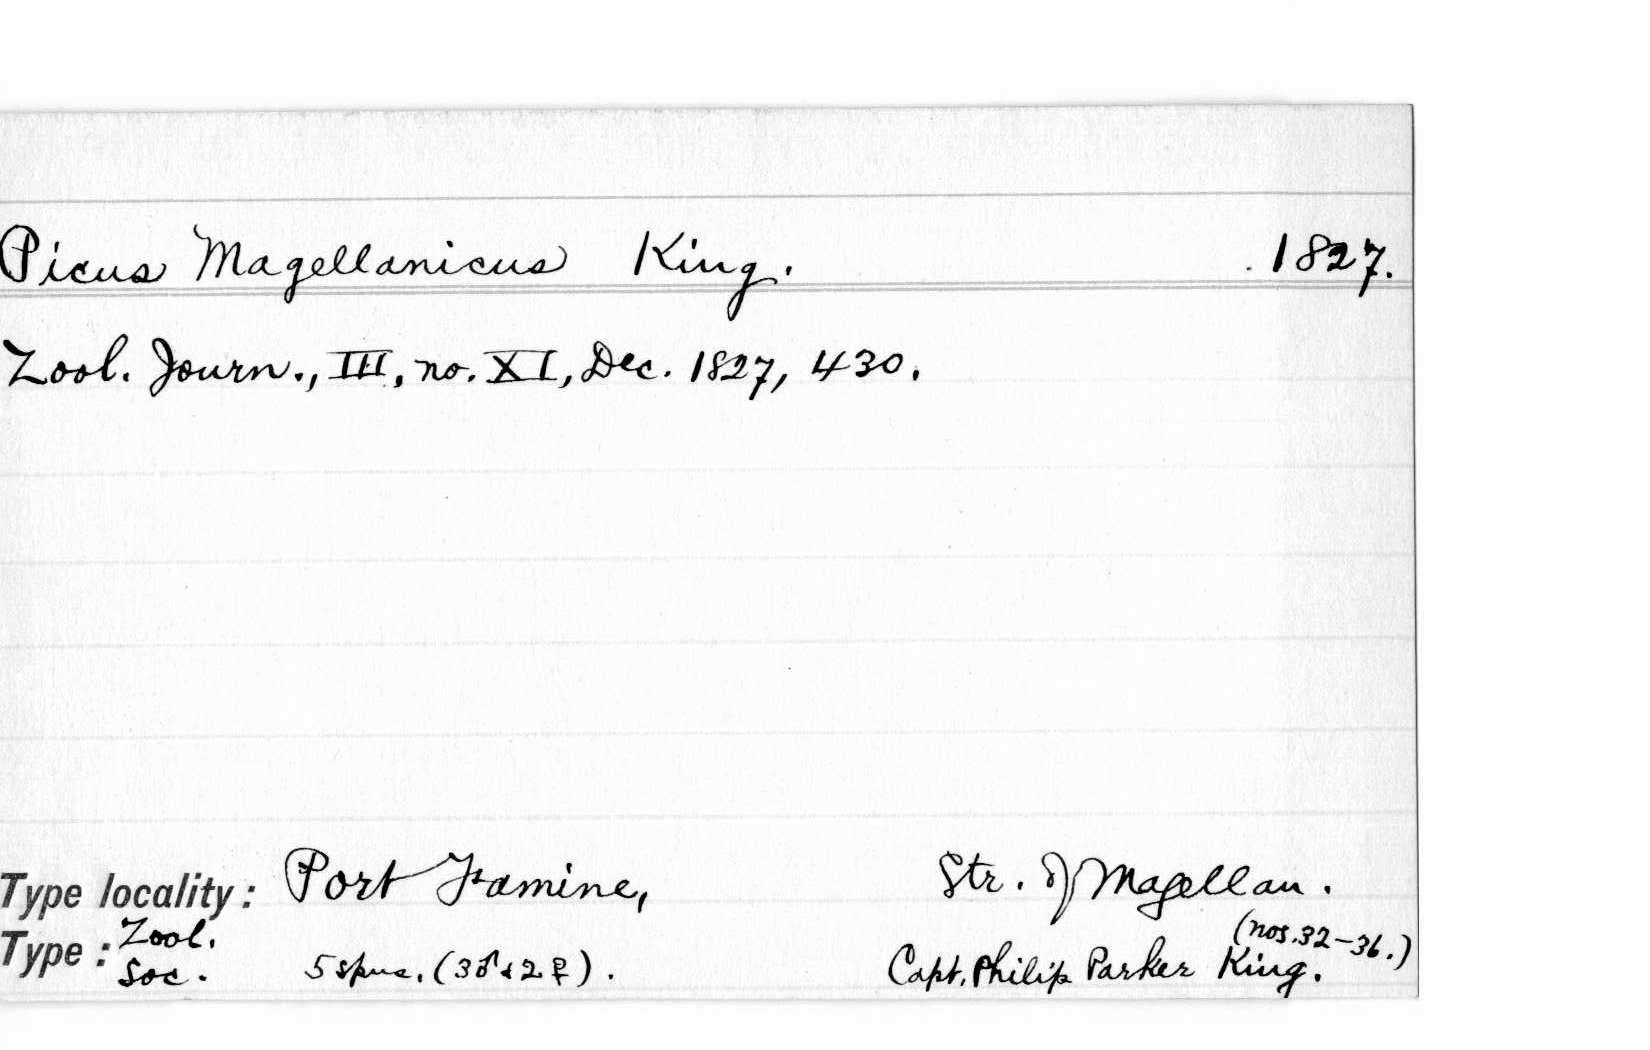 Picus Magellanicus King. 1827.
Zool. Journ., III, no. XI, Dec. 1827, 430.
Type locality: Port Famine, Str. of Magellan.
(nos. 32-36.)
Type: Zool. Soc. 5 spms. (3♂ & 2♀). Capt. Philip Parker King.